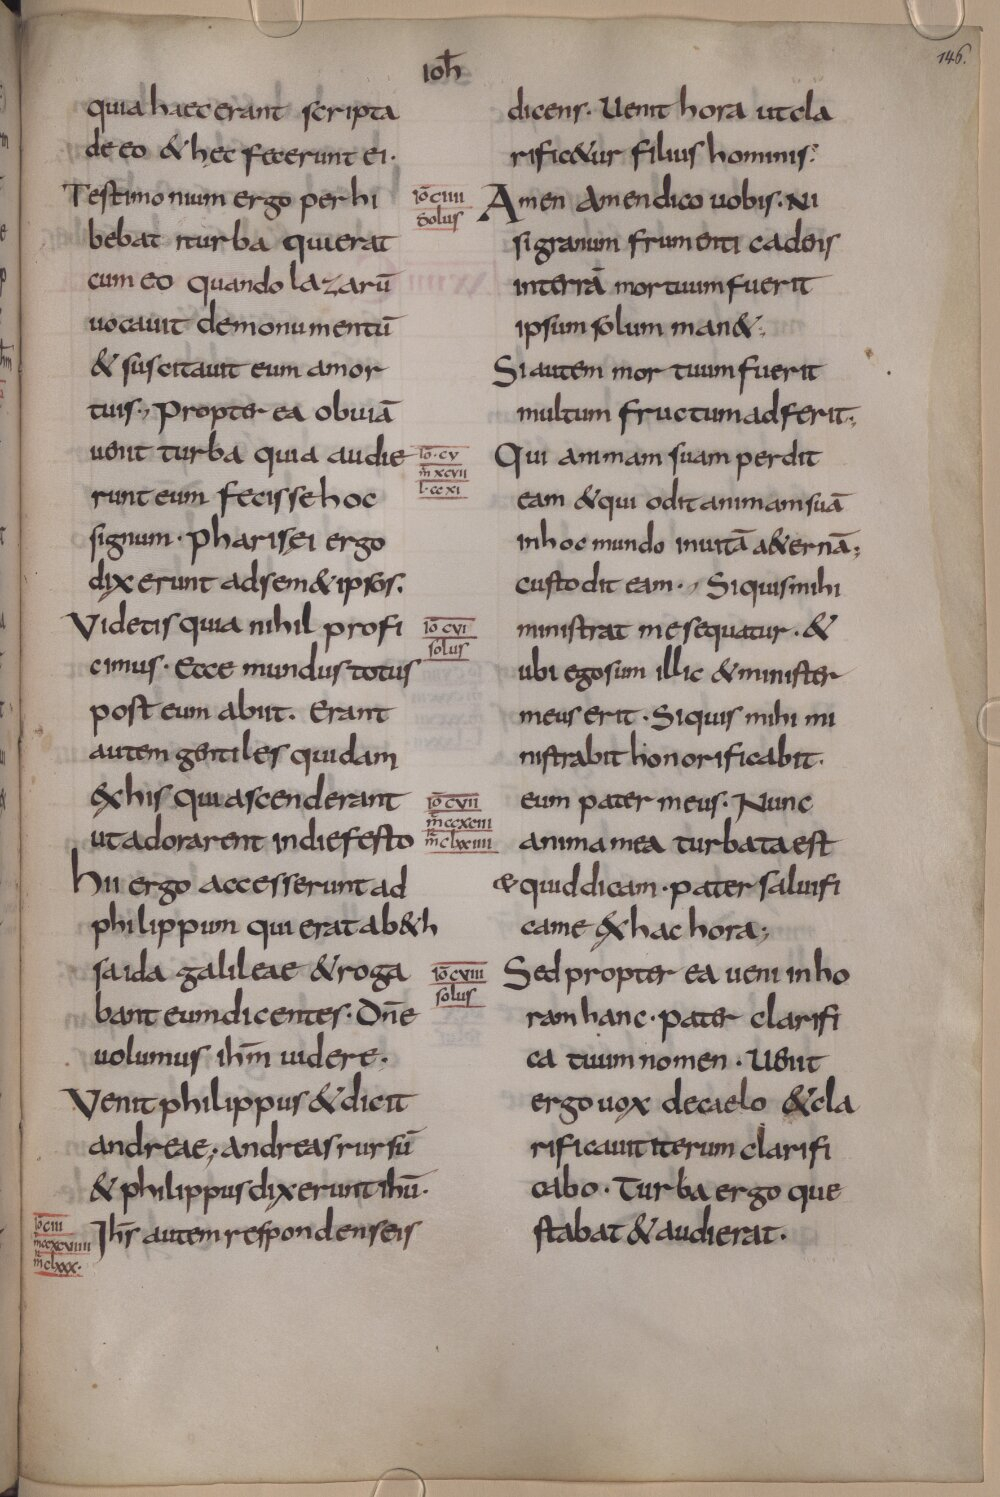 146.
Ioħ
quia haec erant scripta
de eo & hęc fecerunt ei·
Testimonium ergo perhi
bebat turba qui erat
cum eo quando lazarū
uocauit de monumentū
& suscitauit eum amor
tuis·, Propter ea obuiā
uenit turba quia audie
runt eum fecisse hoc
signum· Pharisęi ergo
dixerunt ad sem&ipsos.
Videtis quia nihil profi
cimus· Ecce mundus totus
post eum abiit. Erant
autem gentiles quidam
exhis qui ascenderant
ut adorarent in die festo
hii ergo accesserunt ad
philippum qui erat ab&h
saida galileae & roga
bant eum dicentes· Dn̄e
uolumus ihm̄ uidere·
Venit philippus & dicit
andreae; andreas rursū
& philippus dixerunt ihū·
io ciii
m ccxcviiii
m clxxx·
Ihs̄ autem respondens eis
io ciiii
solus
io·cv
m xcvii
l·ccxi
io cvi
solus
io cvii
m ccxciii
m clxxiiii
io cviii
solus
dicens· Uenit hora ut cla
rific&ur filius hominis·
Amen Amen dico uobis· Ni
si granum frumenti cadens
interrā mortuum fuerit
ipsum solum man&;
Si autem mortuum fuerit
multum fructum adferit;
Qui animam suam perdit
eam & qui odit animam suā
in hoc mundo in uitā a&ernā;
custodit eam·, Si quis mihi
ministrat me sequatur· &
ubi ego sum illic & minister
meus erit· Si quis mihi mi
nistrabit honorificabit·
eum pater meus· Nunc
anima mea turbata est
& quid dicam· pater saluifi
ca me exhac hora;
Sed propter ea ueni in ho
ram hanc· pater clarifi
ca tuum nomen· Uenit
ergo uox de caelo & cla
rificauit iterum clarifi
cabo· Turba ergo que
stabat & audierat·